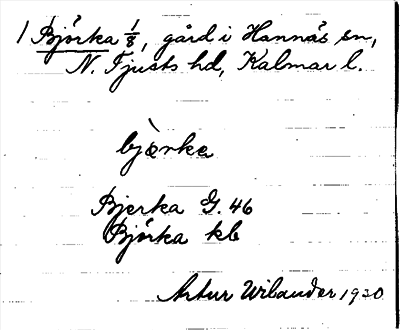 1 Björka 1/8, gård i Hannäs sn,
N. Tjusts hd, Kalmar l.
bjærka
Bjerka G. 46
Björka kb
Artur Wilander 1930